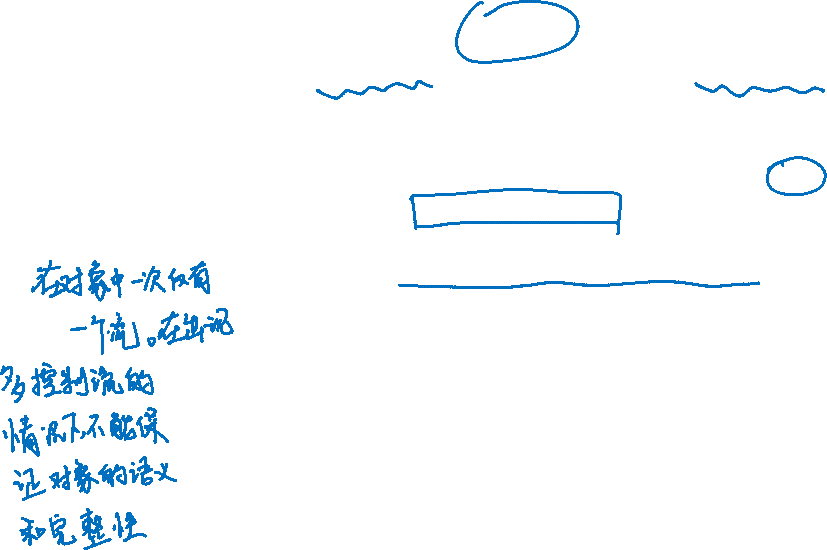 在对象中一次仅有
一个流。在出现
多控制流的
情况下,不能保
证对象的语义
和完整性